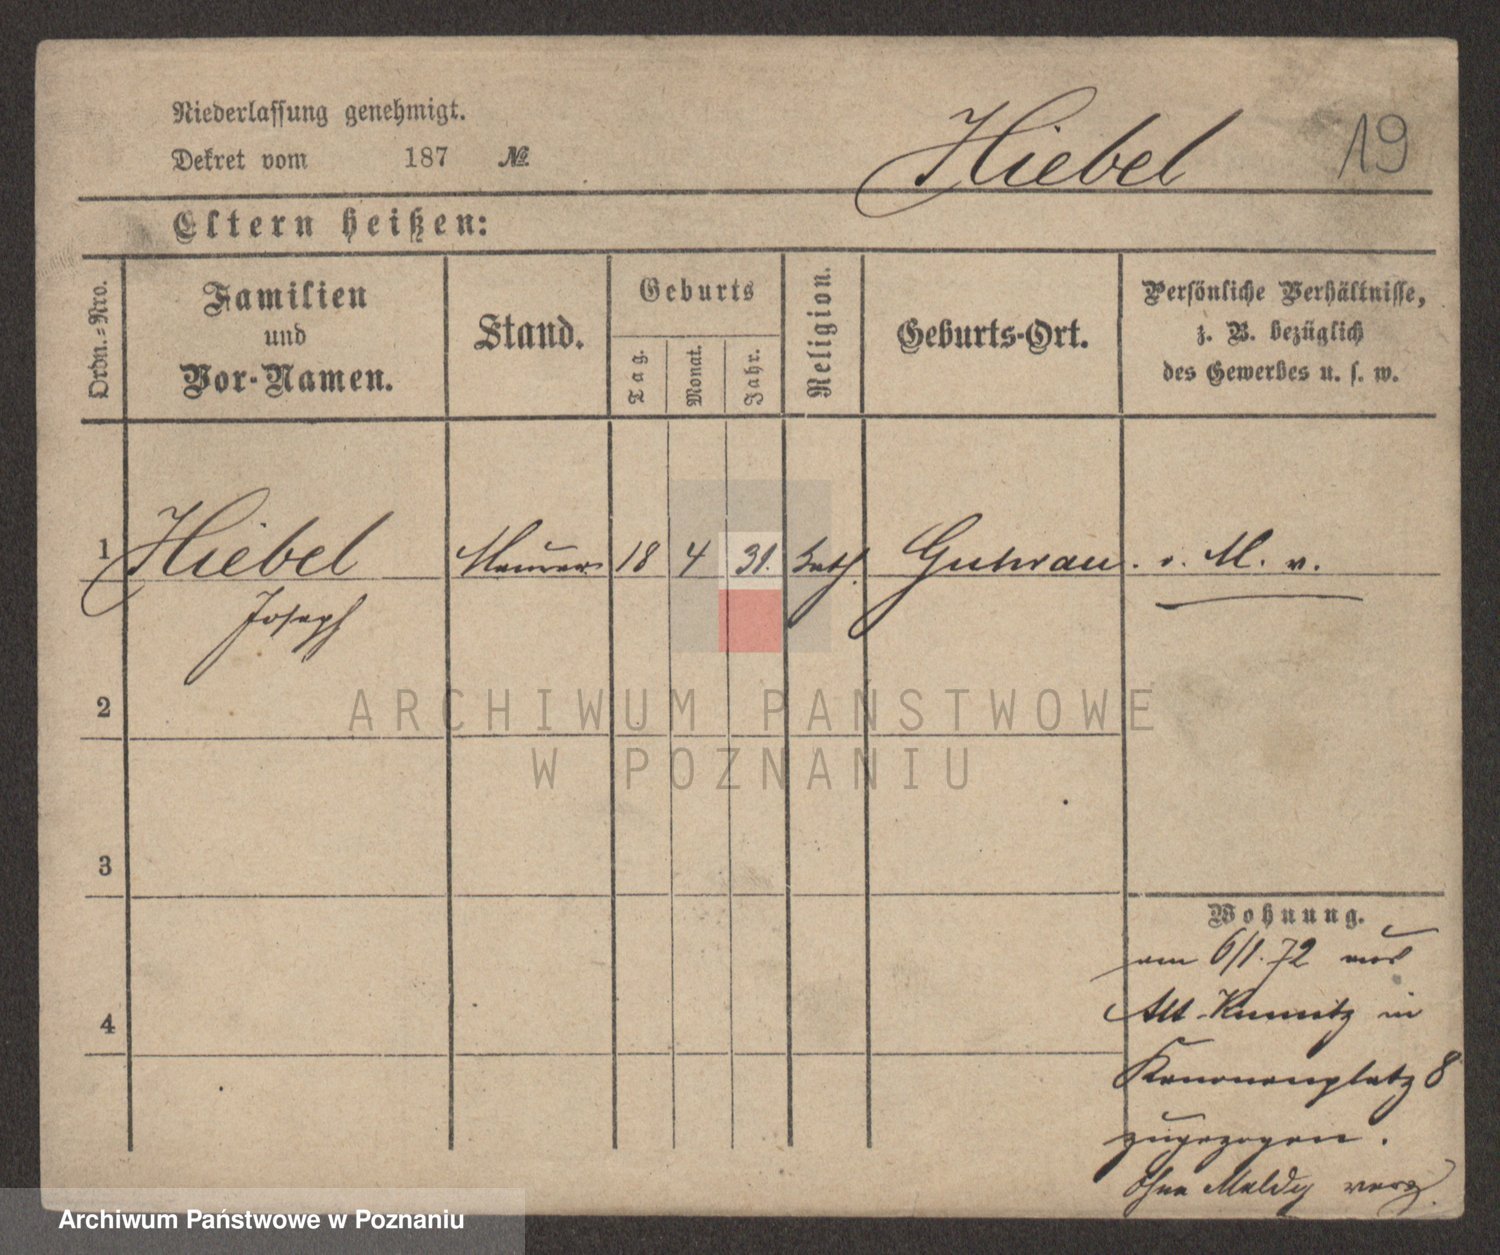 Niederlassung genehmigt.
Dekret vom 187 №
Hiebel 19
Eltern heißen:
Ordn.-Nro.
Familien
und
Vor-Namen.
Stand.
Geburts
Tag.
Monat.
Jahr.
Religion.
Geburts-Ort.
Persönliche Verhältnisse,
z. B. bezüglich
des Gewerbes u. s. w.
1 Hiebel Maurer 18 4 31. kath. Guhrau. M. v.
Joseph
2
3
4
Wohnung.
am 6/1. 72 aus
Alt in
Kanonenplatz 8
zugezogen.
ohne Meldg verz.
ARCHIWUM PAŃSTWOWE
W POZNANIU
Archiwum Państwowe w Poznaniu